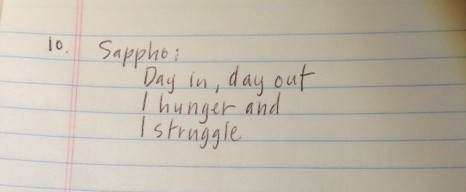 10. Sappho:
Day in, day out
I hunger and
I struggle